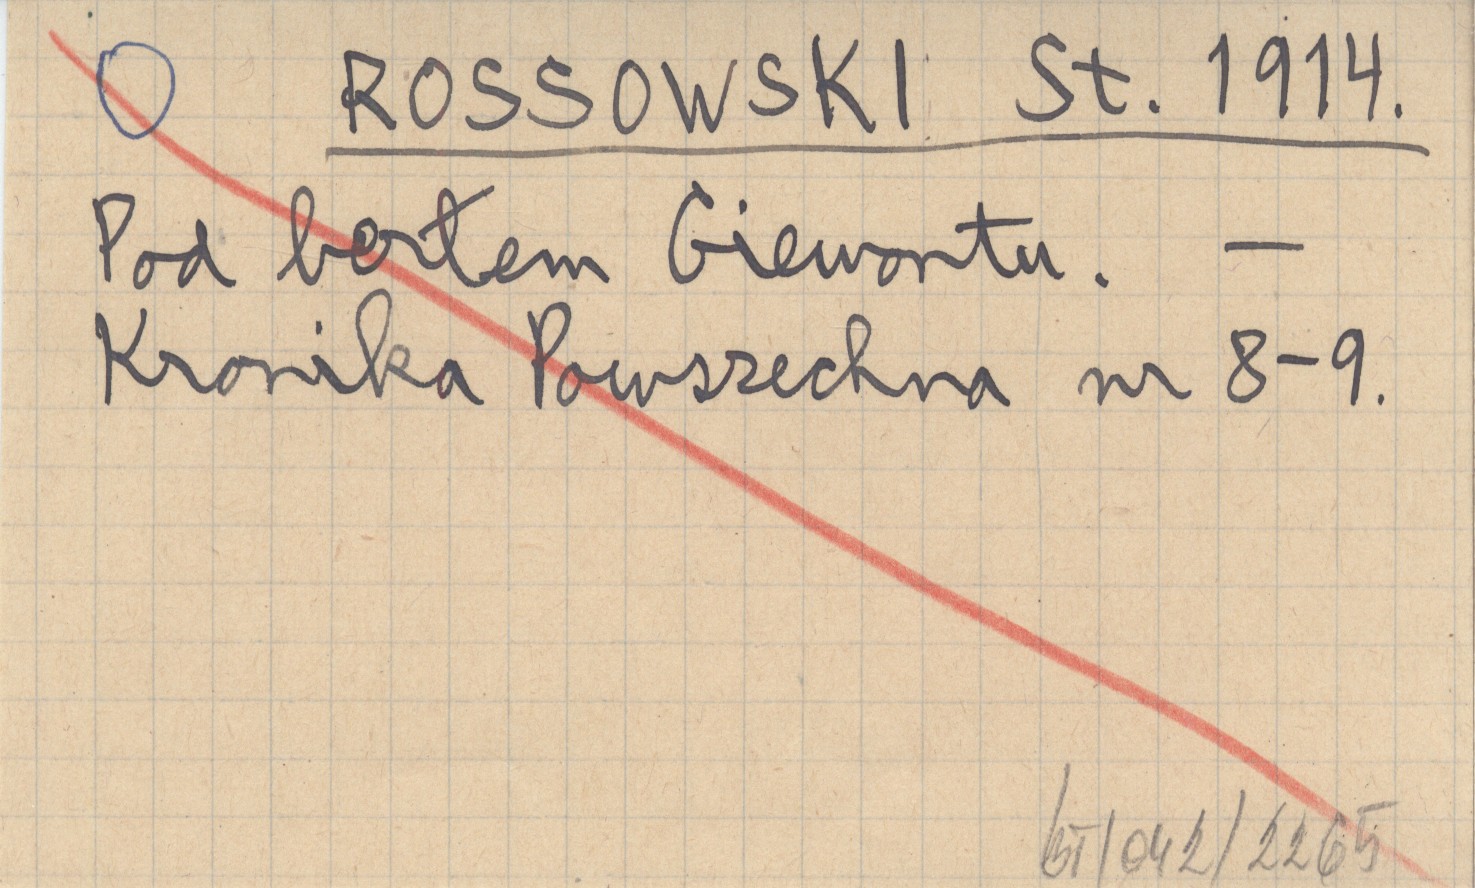 ROSSOWSKI St. 1914.
Pod bertem Giewontu. —
Kronika Powszechna nr 8-9.
BT/042/2265